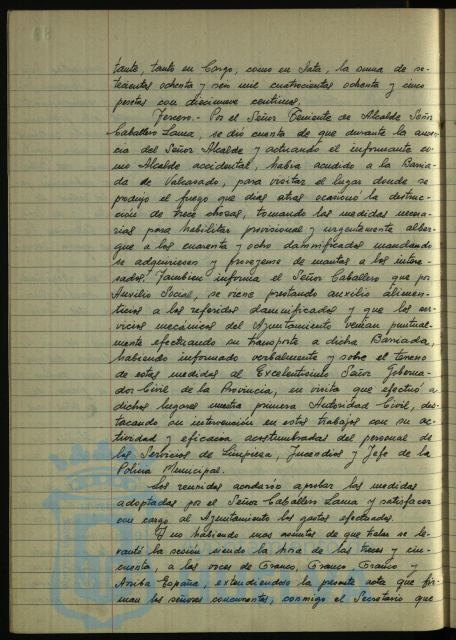 tante, tanto en Cargo, como en Data, la suma de se-
tecientas ochenta y seis mil cuatrocientas ochenta y cinco
pesetas con diecinueve centimos.
Tercero.- Por el Señor Teniente de Alcalde Señor
Caballero Lama, se dió cuenta de que durante la ausen-
cia del Señor Alcalde y actuando el informante co-
mo Alcalde accidental, habia acudido a la Barria-
da de Valcasado, para visitar el lugar donde se
produjo el fuego que dias atras ocasionó la destruc-
ción de trece chozas, tomando las medidas necesa-
rias para habilitar provisional y urgentemente alber-
gue a los cuarenta y ocho damnificados mandando
se adquiriesen y proveyeran de mantas a los intere-
sados. Tambien informa el Señor Caballero que por
Auxilio Social, se viene prestando auxilio alimen-
ticios a los referidos damnificados y que los ser-
vicios mecánicos del Ayuntamiento venian puntual-
mente efectuando su transporte a dicha Barriada,
habiendo informado verbalmente y sobre el terreno
de estas medidas al Excelentisimo Señor Goberna-
dor Civil de la Provincia, en visita que efectuó a
dichos lugares nuestra primera Autoridad Civil, des-
tacando su intervención en estos trabajos con su ac-
tividad y eficacia acostumbradas del personal de
los Servicios de Limpieza, Incendios y Jefe de la
Policia Municipal.
Los reunidos acordaron aprobar las medidas
adoptadas por el Señor Caballero Lama y satisfacer
con cargo al Ayuntamiento los gastos efectuados.
Y no habiendo mas asuntos de que tratar se le-
vantó la sesión siendo la hora de las trece y cin-
cuenta, a las voces de Franco, Franco, Franco y
Arriba España, extendiendose la presente acta que fir-
man los señores concurrentes, conmigo el Secretario que